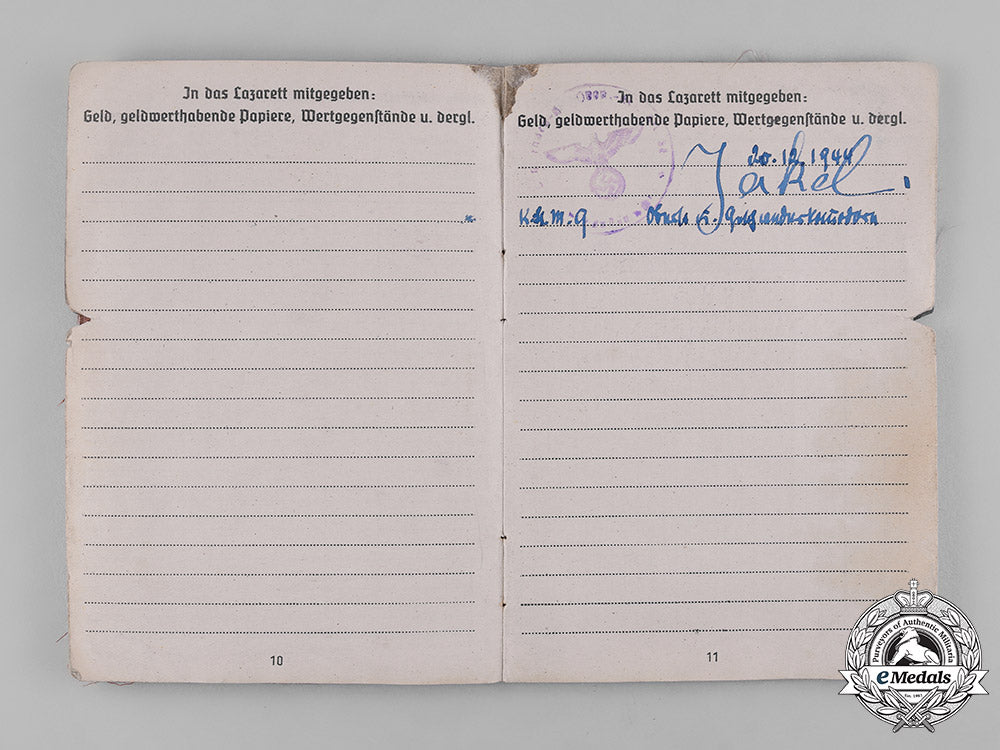 In das Lazarett mitgegeben:
Geld, geldwerthabende Papiere, Wertgegenstände u. dergl.
10
In das Lazarett mitgegeben:
Geld, geldwerthabende Papiere, Wertgegenstände u. dergl.
20.12.1944
Jäkel
Oberlt. u.
11
Purveyors of Authentic Militaria
eMedals